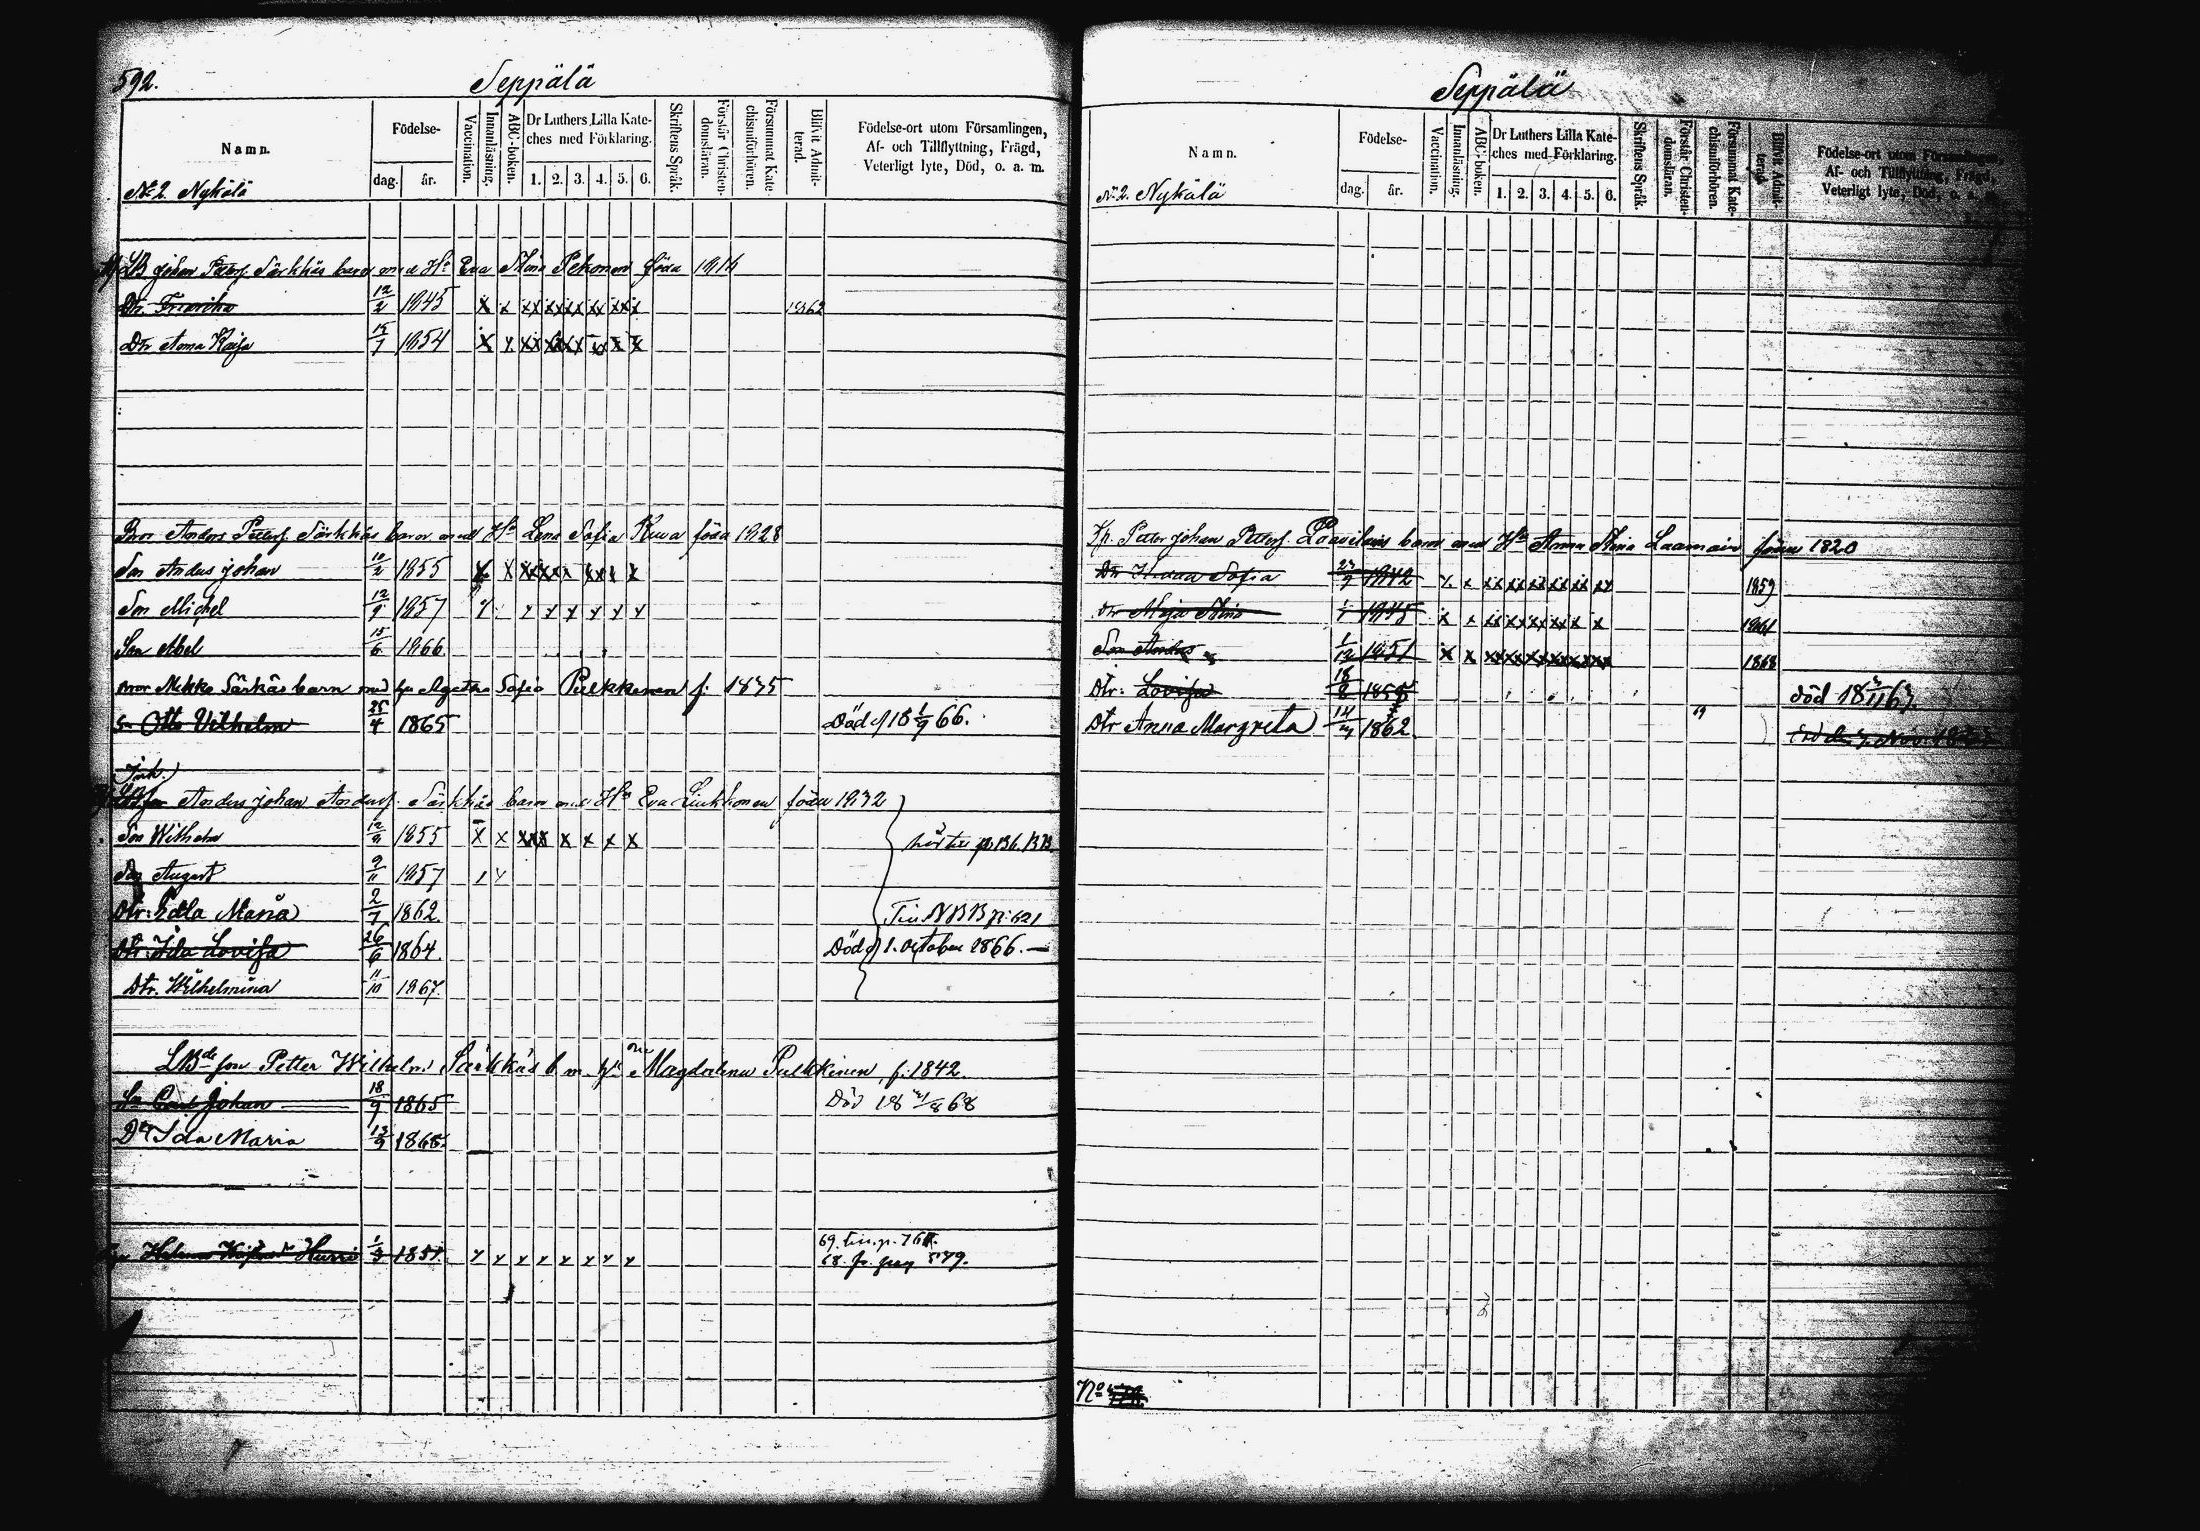 592.
Seppälä
Namn.
Födelse-
dag.
år.
Vaccination.
Innanläsning.
ABC-boken.
Dr Luthers Lilla Kate-
ches med Förklaring.
1. 2. 3. 4. 5. 6.
Skriftens Språk.
Förstår Christen-
domsläran.
Försummat Kate-
chismiförhören.
Blifvit Admit-
terad.
Födelse-ort utom Församlingen,
Af- och Tillflyttning, Frägd,
Veterligt lyte, Död, o. a. m.
No 2. Nykälä
LB Johan Petters. Särkkäs barn med Ha Eva Stina Pekonen föda 1816
Dtr. Fredrika 12/2 1845 1862
Dtr Anna Kaisa 15/7 1854
Bror Anders Petters. Särkkäs barn med Ha Lena Sofia Kuva föda 1828
Son Anders Johan 10/2 1855
Son Michel 12/9 1857
Son Abel 15/6 1866
Bror Mikko Särkäs barn med hu Agatha Sofia Pulkkinen f: 1835
Sn Otto Vilhelm 25/4 1865 Död 18 1/9 66.
Inh.
Anders Johan Anders. Särkkäs barn med Ha Eva föda 1832
Son Wilhelm 12/2 1855
Son August 9/11 1857
Dtr: Edla Maria 2/7 1862. Till NBB p: 621
Dtr: Ida Lovisa 26/6 1864. Död 1. October 1866.
Dtr. Wilhelmina 11/10 1867.
LBde son Petter Wilhelm Särkkäs b. m. hu Magdalena Pulkkinen, f: 1842.
Sn Carl Johan 18/9 1865 Död 18 21/8 68
Dtr Ida Maria 13/9 1868.
Hurri 1/3 1851. 69. till p. 767.
68. fr. pag 579.
Seppälä
Namn.
Födelse-
dag.
år.
Vaccination.
Innanläsning.
ABC-boken.
Dr Luthers Lilla Kate-
ches med Förklaring.
1. 2. 3. 4. 5. 6.
Skriftens Språk.
Förstår Christen-
domsläran.
Försummat Kate-
chismiförhören.
Blifvit Admit-
terad.
Födelse-ort utom Församlingen,
Af- och Tillflyttning, Frägd,
Veterligt lyte, Död, o. a. m.
No 2. Nykälä
Kp. Petter Johan Petters. Paavilais barn med Ha Anna Stina Laamain föda 1820
Dtr Sofia 23/9 1842 1859
Dtr Maja Stina 1/7 1845 1861
Son Anders 1/12 1851 1868
Dtr: Lovisa 18/8 död 18 63.
Dtr Anna Margreta 14/3 1862.
No